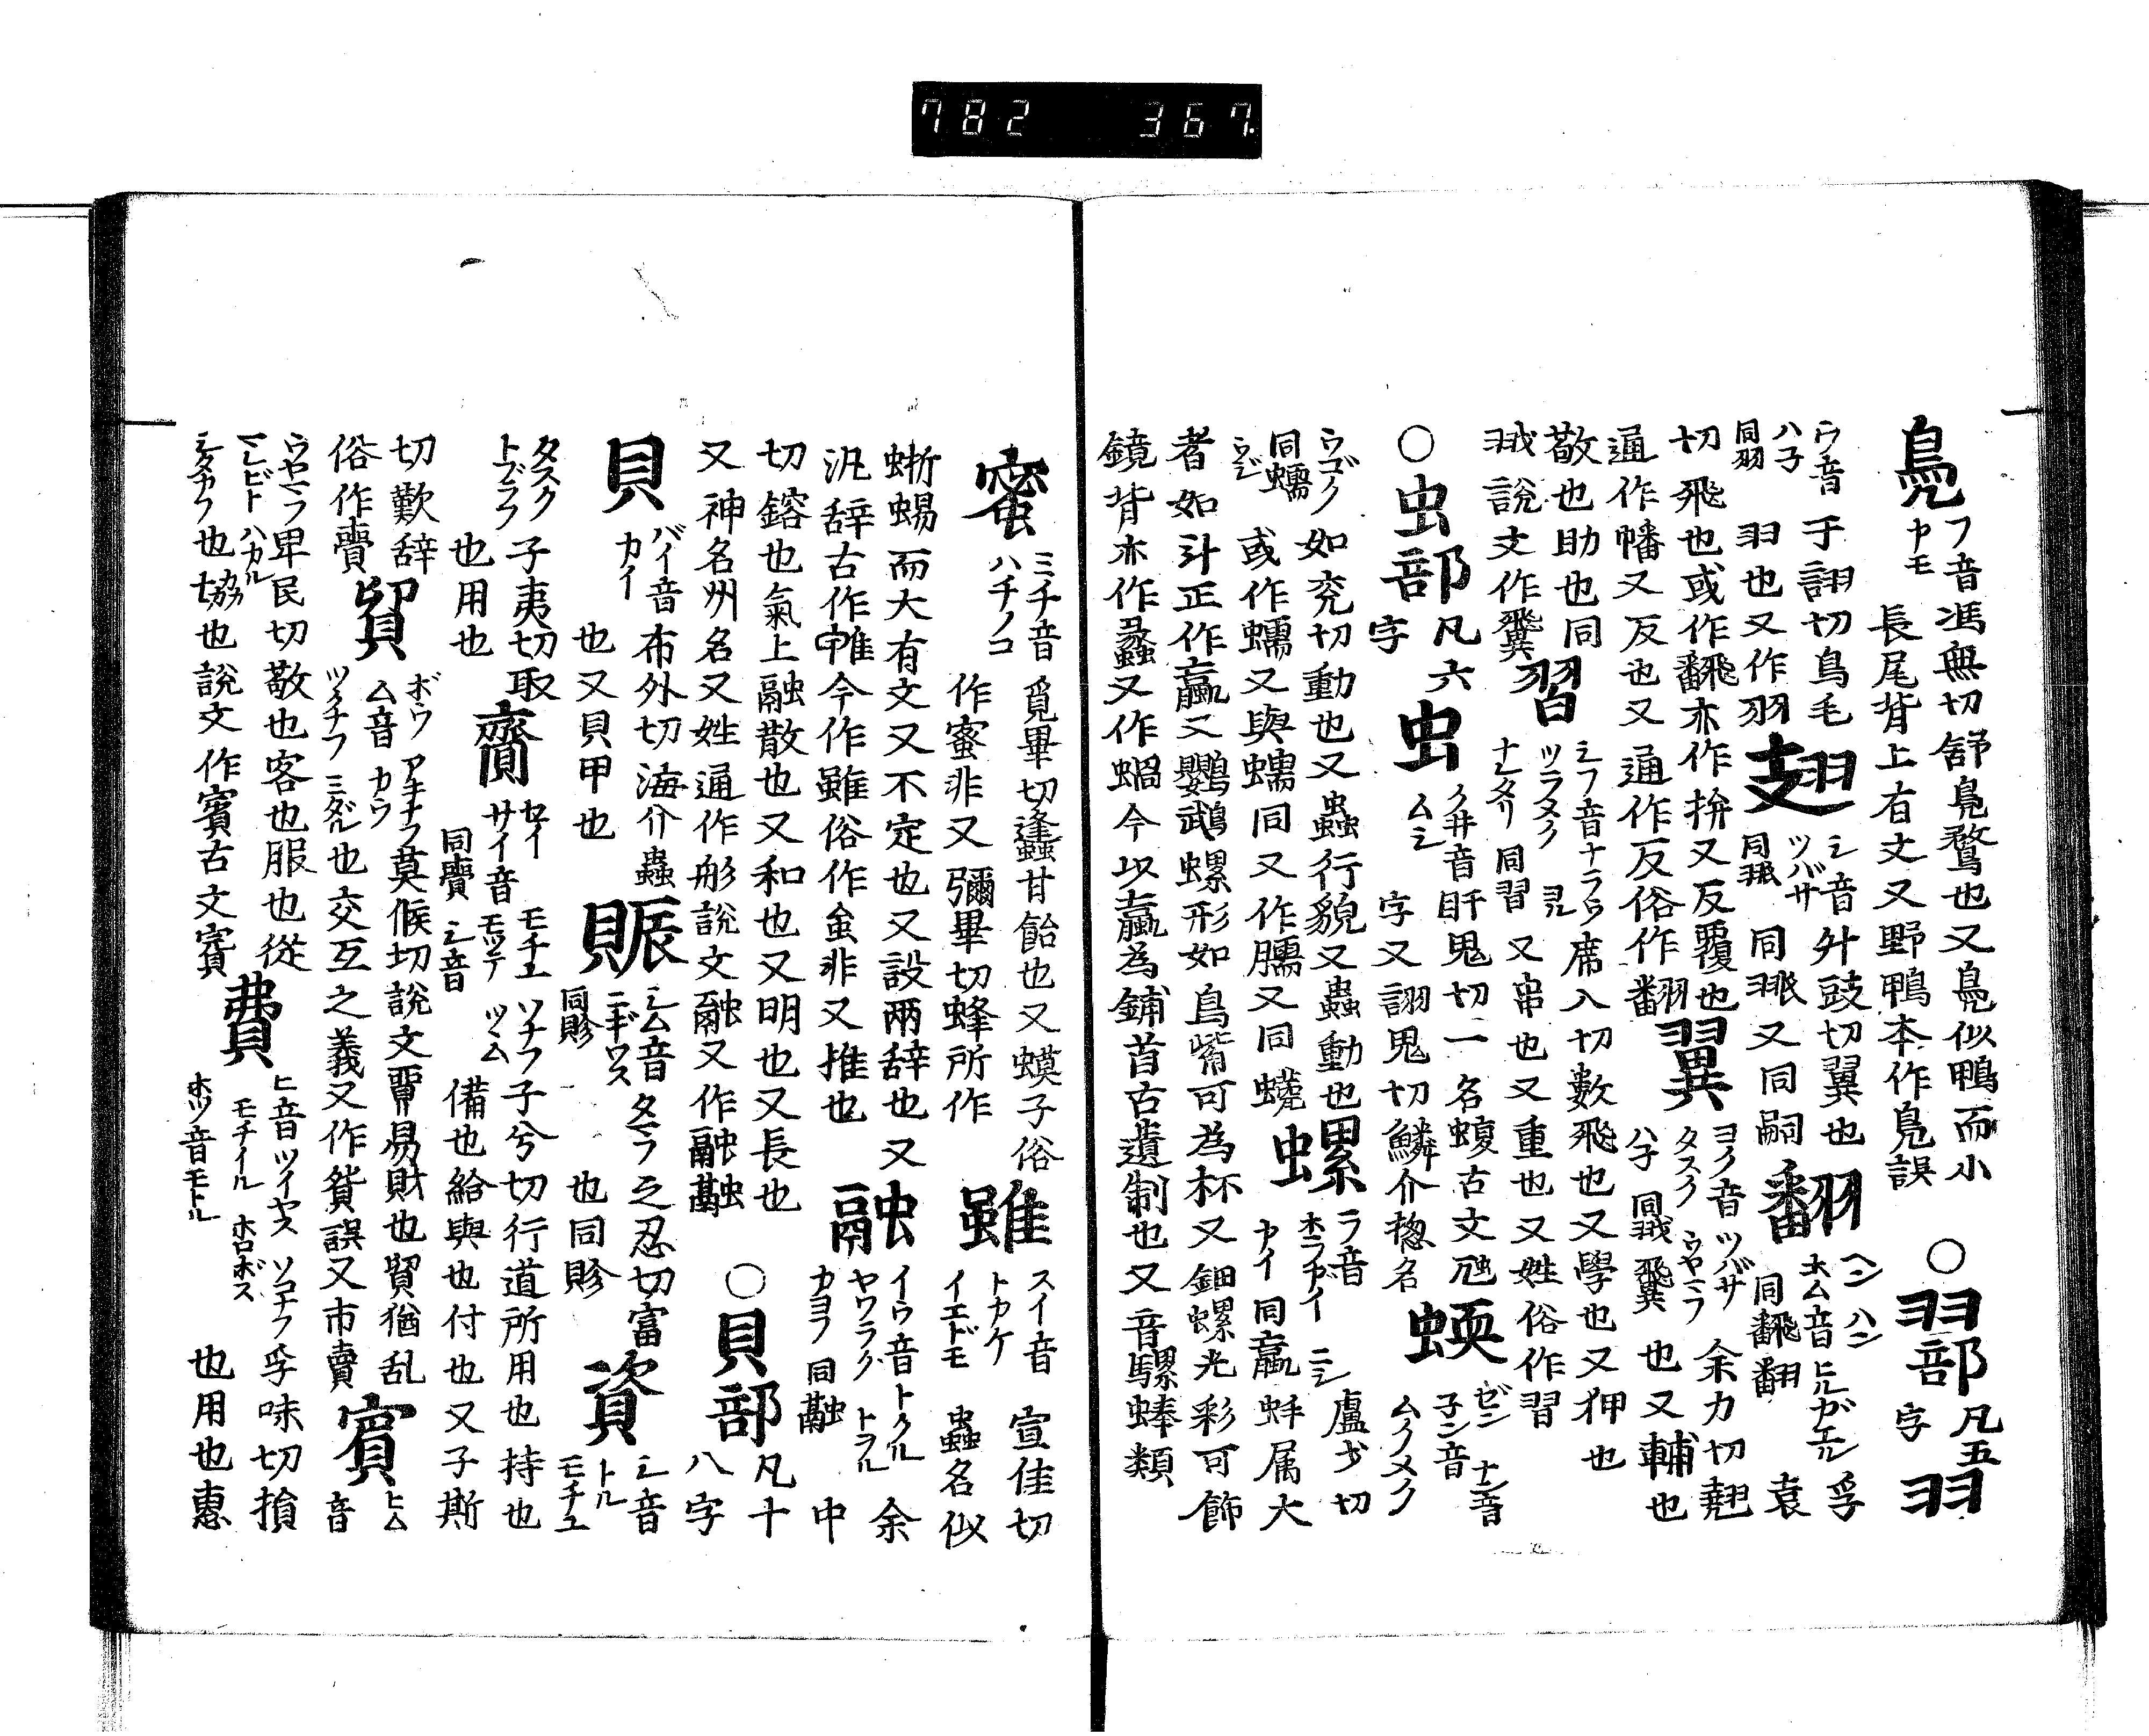 782 367.
鳬 フ音 馮無切舒鳬鶩也又鳬似鴨而小
ヤモ 長尾背上有文又野鴨本作鳬誤 ○羽部 凡五字 羽
ウ音 于詡切鳥毛
ハ子 同羽 羽也又作羽 翅 シ音 ツバサ 外豉切翼也 同翄 同翄又同翤 翻 ヘン ハン ホム音 ヒルガエル 同飜翻 孚袁
切飛也或作飜亦作拚又反覆也
通作幡又反也又通作反俗作翻 翼 ヨク音 ツバサ タスク ウヤマフ ハ子 余力切翅也又輔也
敬也助也同
𦐂説文作𩙺 習 シフ音 ナラウ ツラヌク ヨル ナレタリ 同習 席入切數飛也又學也又狎也
又串也又重也又姓俗作習
○虫部 凡六字 虫 クヰ音 ムシ 𥄎鬼切一名蝮古文虺
字又詡鬼切鱗介揔名 蝡 ゼン ナン音 子ン音 ムクメク
ウゴク 如兖切動也又蟲行貌又蟲動也
同蠕 ウジ 或作蠕又與蠕同又作臑又同蟯 螺 ラ音 ニシ ホラガイ ヤイ 同蠃 盧戈切蚌属大
者如斗正作蠃又鸚鵡螺形如鳥觜可為杯又鈿螺光彩可飾
鏡背亦作蠡又作蝸今以蠃為鋪首古遺制也又音騾蜯類
蜜 ミチ音 ハチノコ 覓畢切蜂蟲甘飴也又蟆子俗
作蜜非又彌畢切蜂所作 雖 スイ音 トカケ イエドモ 宣佳切蟲名似
蜥蜴而大有文又不定也又設兩辞也又
况辞古作帷今作雖俗作虽非又推也 融 イウ音 トクル ヤワラグ トヲル カヨフ 同䖆 余中
切鎔也氣上融散也又和也又明也又長也
又神名州名又姓通作肜説文融又作融䖆 ○貝部 凡十八字
貝 バイ音 カイ 布外切海介蟲
也又貝甲也 賑 シム音 ニギワス 同賑 タマフ 之忍切富也同賑 資 シ音 トル モチユ
タスク トブラフ 子夷切取也用也 齎 セイ サイ音 モチユ モツテ 同賷 シ音 ソナフ ツム 子兮切行道所用也持也
備也給與也付也又子斯
切歎辞俗作賷 貿 ボウ ム音 アキナフ カウ ツイヤフ ミダル 莫候切説文貿易財也貿猶乱
也交互之義又作貨誤又市賣 賓 ヒム音
ウヤマフ マレビト ハカル シタカフ 卑民切敬也客也服也從
也協也説文作賓古文賓 費 ヒ音 ツイヤス ソコナフ モチイル ホロボス ホツ音 モトル 孚味切損
也用也惠